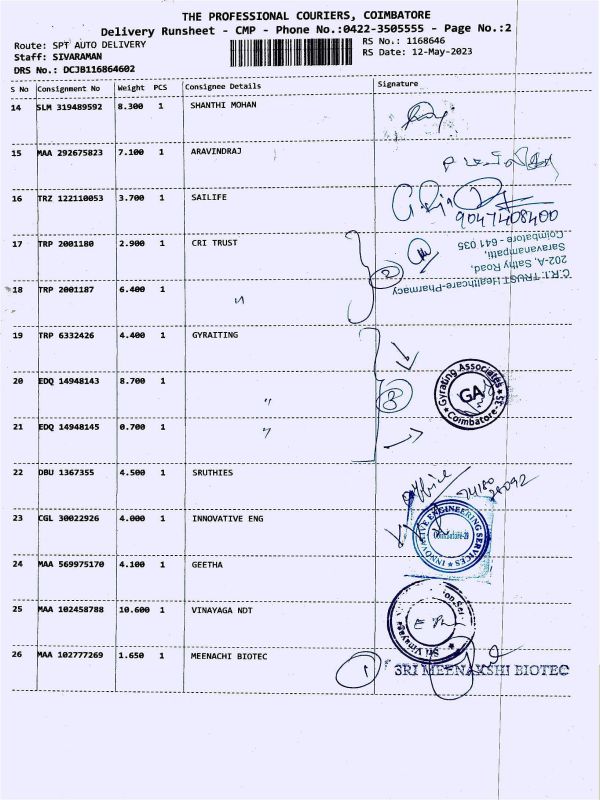 THE PROFESSIONAL COURIERS, COIMBATORE
Delivery Runsheet - CMP - Phone No.:0422-3505555 - Page No.:2
Route: SPT AUTO DELIVERY
RS No.: 1168646
Staff: SIVARAMAN
RS Date: 12-May-2023
DRS No.: DCJB116864602
S No Consignment No Weight PCS Consignee Details Signature
14 SLM 319489592 8.300 1 SHANTHI MOHAN
15 MAA 292675823 7.100 1 ARAVINDRAJ
16 TRZ 122110053 3.700 1 SAILIFE
9047408400
17 TRP 2001180 2.900 1 CRI TRUST
C.R.I. TRUST Healthcare-Pharmacy
202-A, Sathy Road,
Saravanampatti,
Coimbatore - 641 035
2
18 TRP 2001187 6.400 1 "
19 TRP 6332426 4.400 1 GYRAITING
20 EDQ 14948143 8.700 1 "
3
Gyrating Associates
GA
* Coimbatore-35 *
21 EDQ 14948145 0.700 1 "
22 DBU 1367355 4.500 1 SRUTHIES
office
23 CGL 30022926 4.000 1 INNOVATIVE ENG
INNOVATIVE ENGINEERING SERVICES
24 MAA 569975170 4.100 1 GEETHA
25 MAA 102458788 10.600 1 VINAYAGA NDT
Sri Vinayaga
26 MAA 102777269 1.650 1 MEENACHI BIOTEC
1
SRI MEENAKSHI BIOTEC